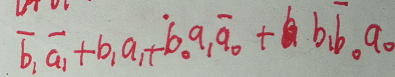 b̄₁ā₁ + b₁a₁ + b̄₀a₁ā₀ + b₁b̄₀a₀